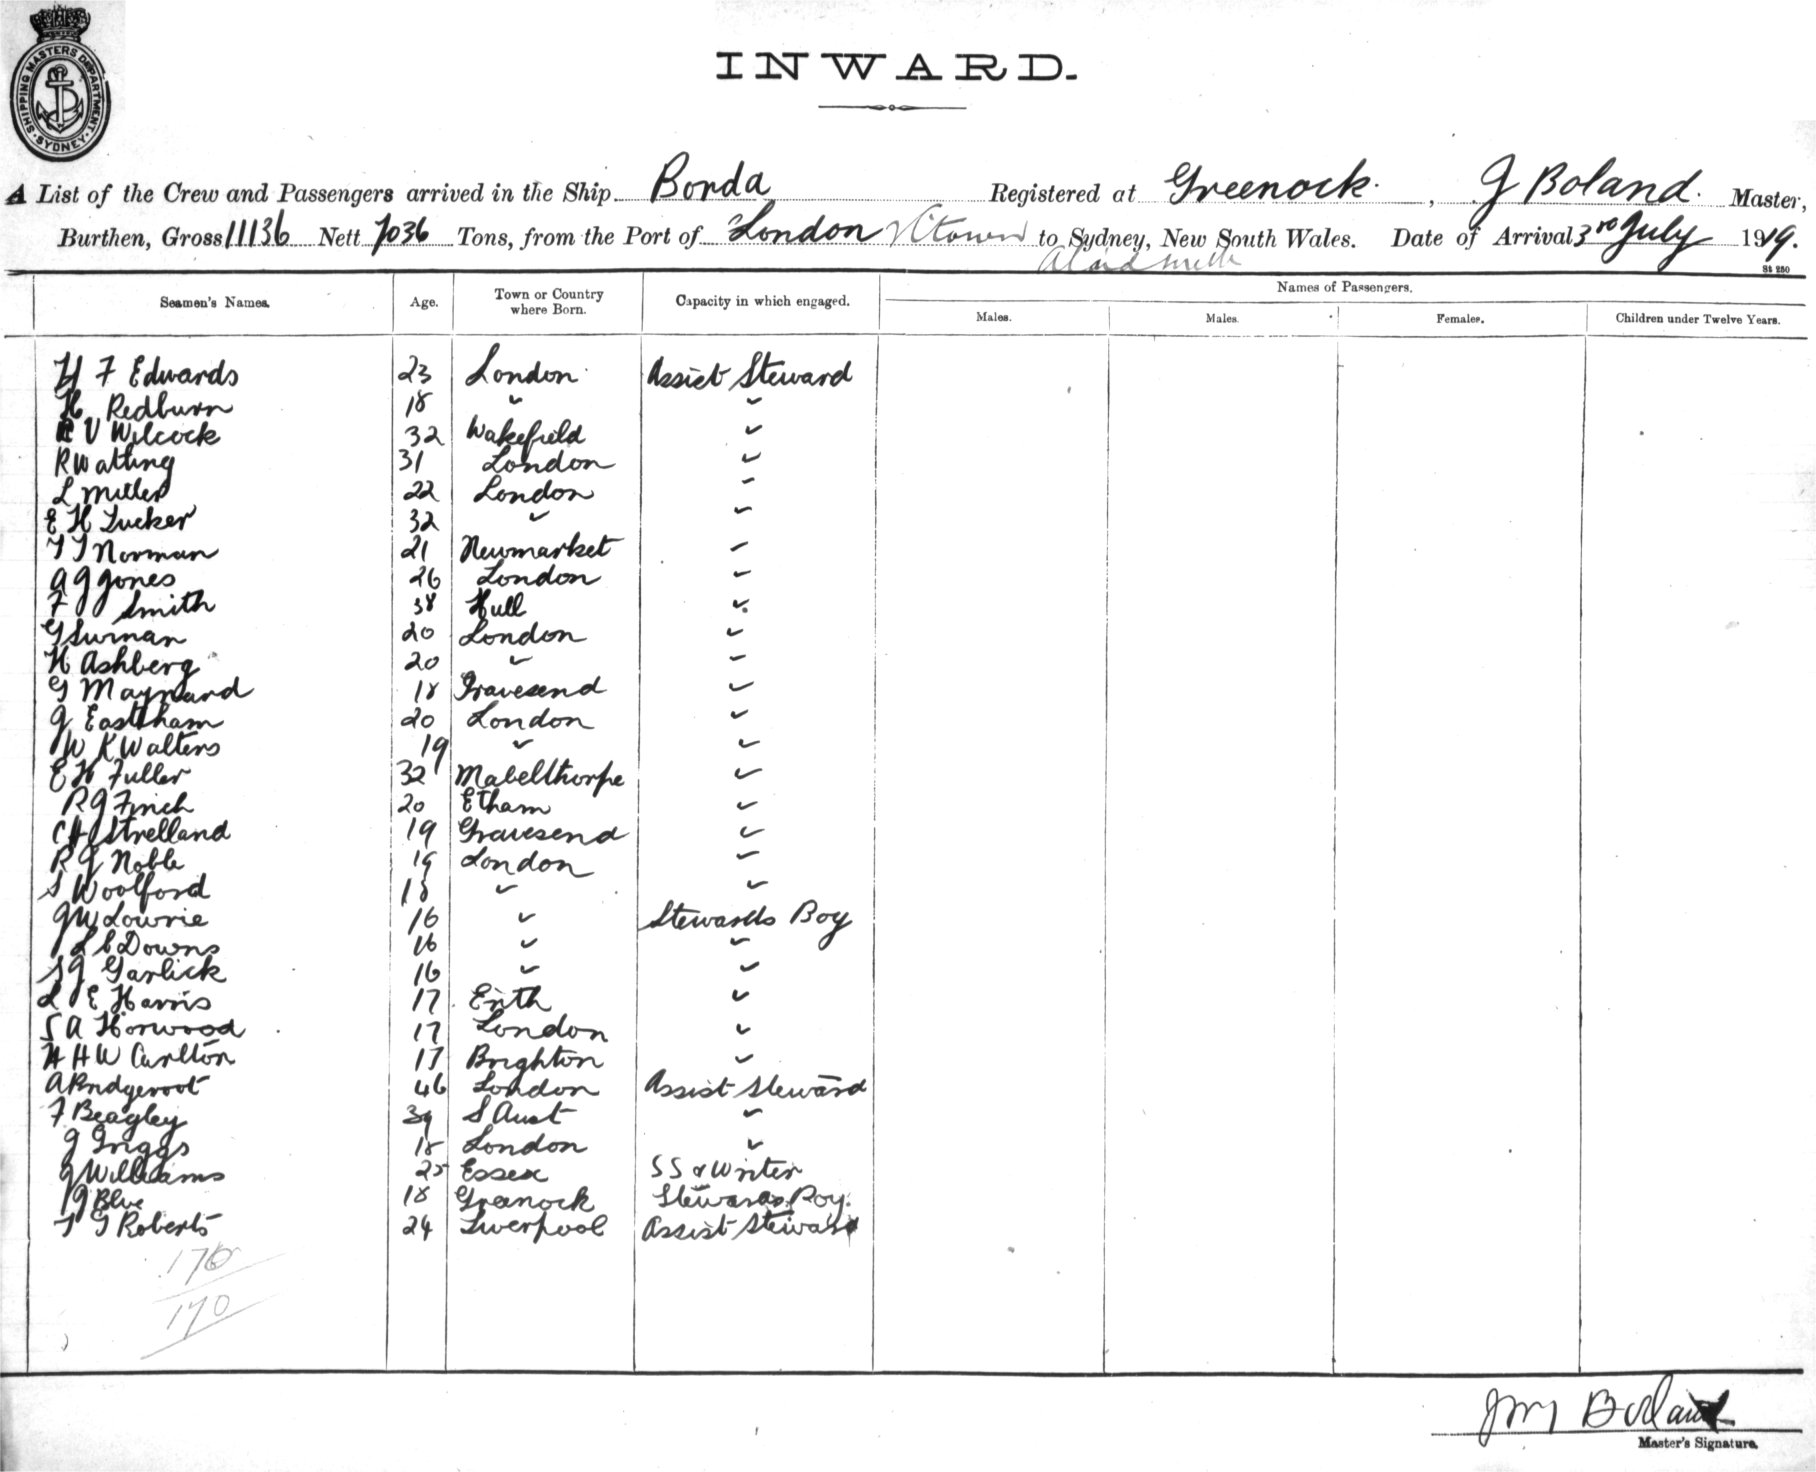 SHIPPING MASTERS DEPARTMENT. SYDNEY
INWARD.
A List of the Crew and Passengers arrived in the Ship Borda Registered at Greenock. , J Boland. Master,
Burthen, Gross 11136 Nett 7036 Tons, from the Port of London to Sydney, New South Wales. Date of Arrival 3rd July 1919.
St 250
Seamen's Names. Age. Town or Country where Born. Capacity in which engaged. Names of Passengers.
Males. Males. Females. Children under Twelve Years.
H F Edwards 23 London Assist Steward
H Redburn 18 " "
R V Wilcock 32 Wakefield "
R Watling 31 London "
L Miller 22 London "
E H Tucker 32 " "
T J Norman 21 Newmarket "
A J Jones 26 London "
F J Smith 38 Hull "
G Surman 20 London "
H Ashberg 20 " "
G Maynard 18 Gravesend "
J Eastham 20 London "
W K Walters 19 " "
E H Fuller 32 Mabelthorpe "
R J Finch 20 Etham "
C H Strelland 19 Gravesend "
R J Noble 19 London "
S Woolford 18 " "
J W Lowrie 16 " Stewards Boy
L C Downs 16 " "
S J Garlick 16 " "
L E Harris 17 Erith "
S A Horwood 17 London "
H H W Carlton 17 Brighton "
A Pridgeroot 46 London Assist Steward
F Beagley 39 S Aust "
J Griggs 18 London "
J Williams 25 Essex SS & Writer
J Blue 18 Greenock Stewards Boy.
T G Roberts 24 Liverpool Assist Steward
176
170
Boland
Master's Signature.